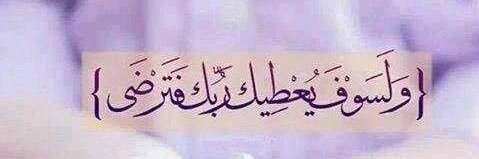 {وَلَسَوْفَ يُعْطِيكَ رَبُّكَ فَتَرْضَى}